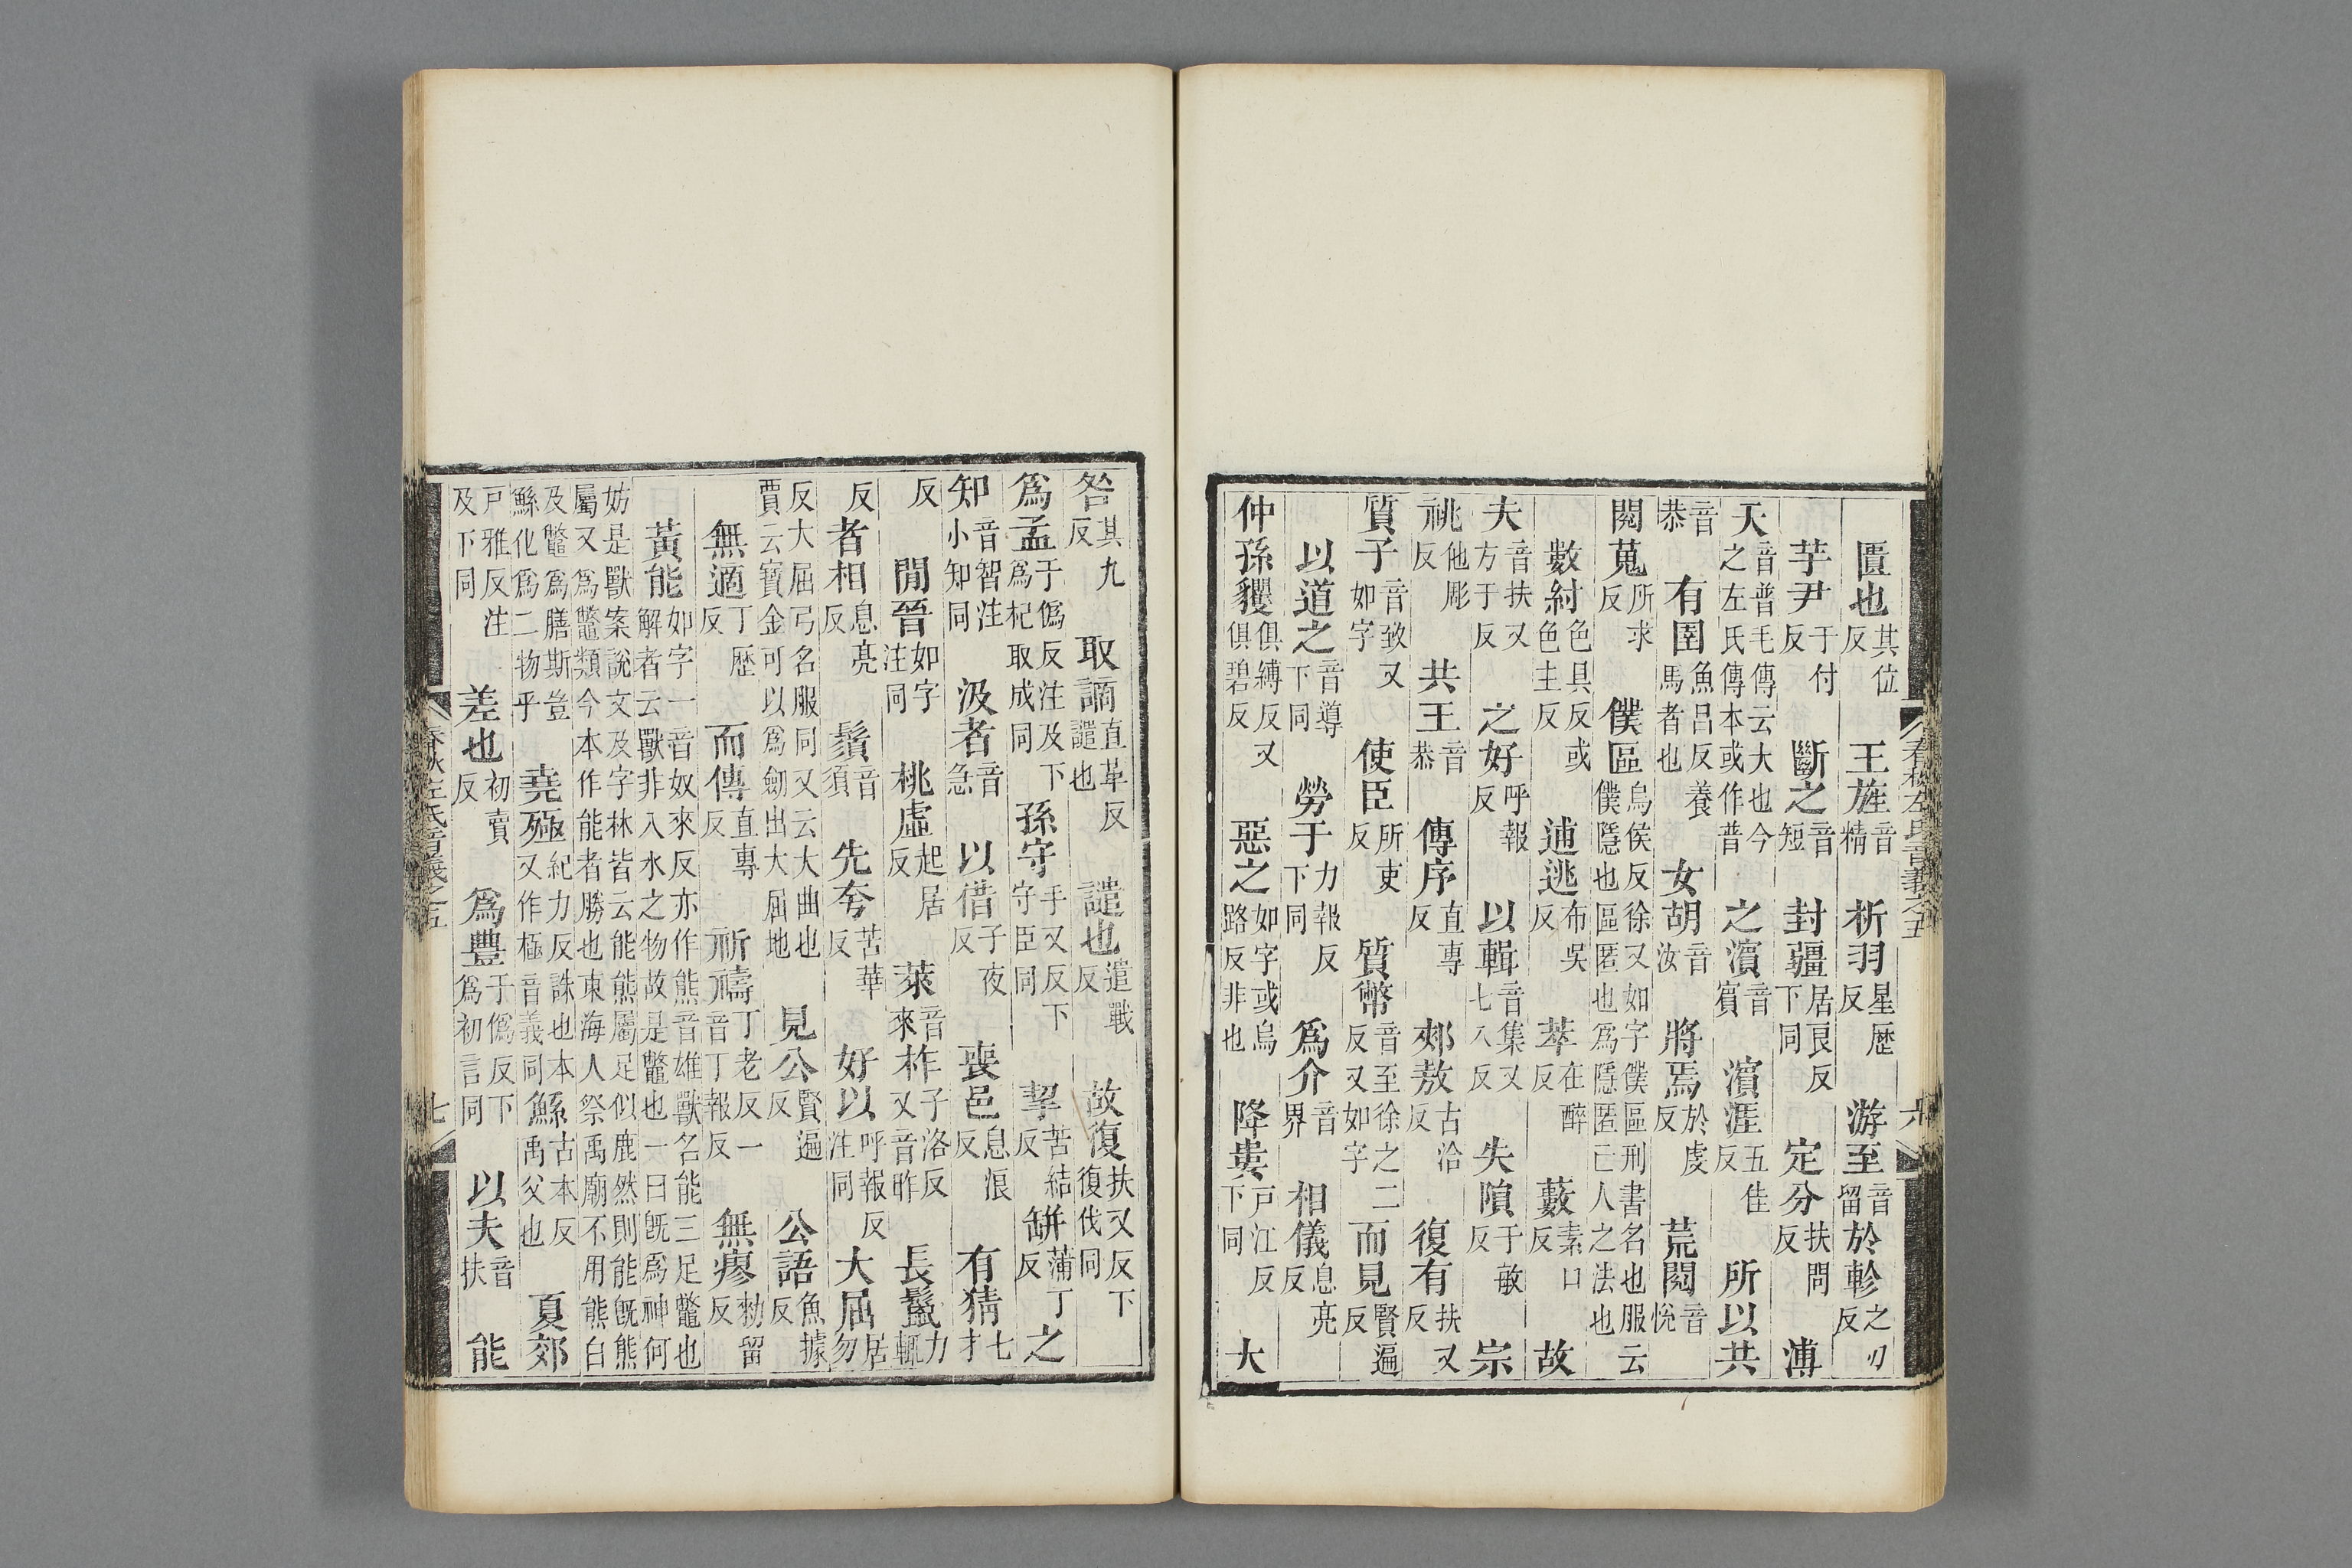 春秋左氏音義之五 六
匱也 其位反 王旌 音精 析羽 星歷反 游至 音留 於軫 之刃反
芋尹 于付反 斷之 音短 封疆 居艮反下同 定分 扶問反 溥
天 音普毛傳云大也今之左氏傳本或作普 之濱 音賓 濱涯 五佳反 所以共
音恭 有圉 魚呂反養馬者也 女胡 音汝 將焉 於虔反 荒閱 音悅
閱蒐 所求反 僕區 烏侯反徐又如字僕區刑書名也服云僕隱也區匿也爲隱匿亡人之法也
數紂 色具反或色主反 逋逃 布吳反 萃 在醉反 藪 素口反 故
夫 音扶又方于反 之好 呼報反 以輯 音集又七入反 失隕 于敏反 宗
祧 他彫反 共王 音恭 傳序 直專反 郟敖 古洽反 復有 扶又反
質子 音致又如字 使臣 所吏反 質幣 音至徐之二反又如字 而見 賢遍反
以道之 音導下同 勞于 力報反下同 爲介 音界 相儀 息亮反
仲孫貜 俱縛反又俱碧反 惡之 如字或烏路反非也 降婁 戶江反下同 大
咎 其九反 取謫 直革反譴也 譴也 遣戰反 故復 扶又反下復伐同
爲孟 于僞反注及下爲杞取成同 孫守 手又反下守臣同 挈 苦結反 缾 蒲丁反 之
知 音智注小知同 汲者 音急 以借 子夜反 喪邑 息浪反 有猜 七才
反 閒晉 如字注同 桃虛 起居反 萊 音來 柞 子洛反又音昨 長鬣 力輒
反 者相 息亮反 鬚 音須 先夸 苦華反 好以 呼報反注同 大屈 居勿
反大屈弓名服同又云大曲也賈云寶金可以爲劒出大屈地 見公 賢遍反 公語 魚據反
無適 丁歷反 而傳 直專反 祈禱 丁老反一音丁報反 無瘳 勑留反
黃能 如字一音奴來反亦作熊音雄獸名能三足鼈也解者云獸非入水之物故是鼈也一曰旣爲神何
妨是獸案說文及字林皆云能熊屬足似鹿然則能旣熊屬又爲鼈類今本作能者勝也東海人祭禹廟不用熊白
及鼈爲膳斯豈鯀化爲二物乎 堯殛 紀力反誅也本又作極音義同 鯀 古本反禹父也 夏郊
戶雅反注及下同 差也 初賣反 爲豐 于僞反下爲初言同 以夫 音扶 能
春秋左氏音義之五 七